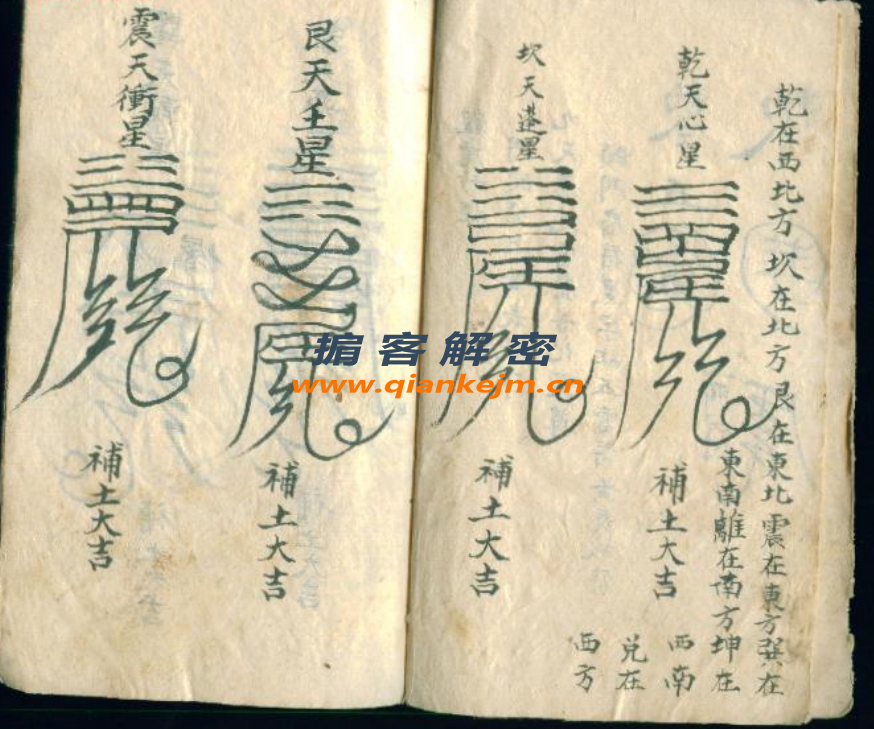 乾在西北方坎在北方艮在東北震在東方巽在
東南離在南方坤在
西南
兌在
西方
乾天心星
補土大吉
坎天蓬星
補土大吉
艮天壬星
補土大吉
震天衝星
補土大吉
掮客解密
www.qiankejm.cn